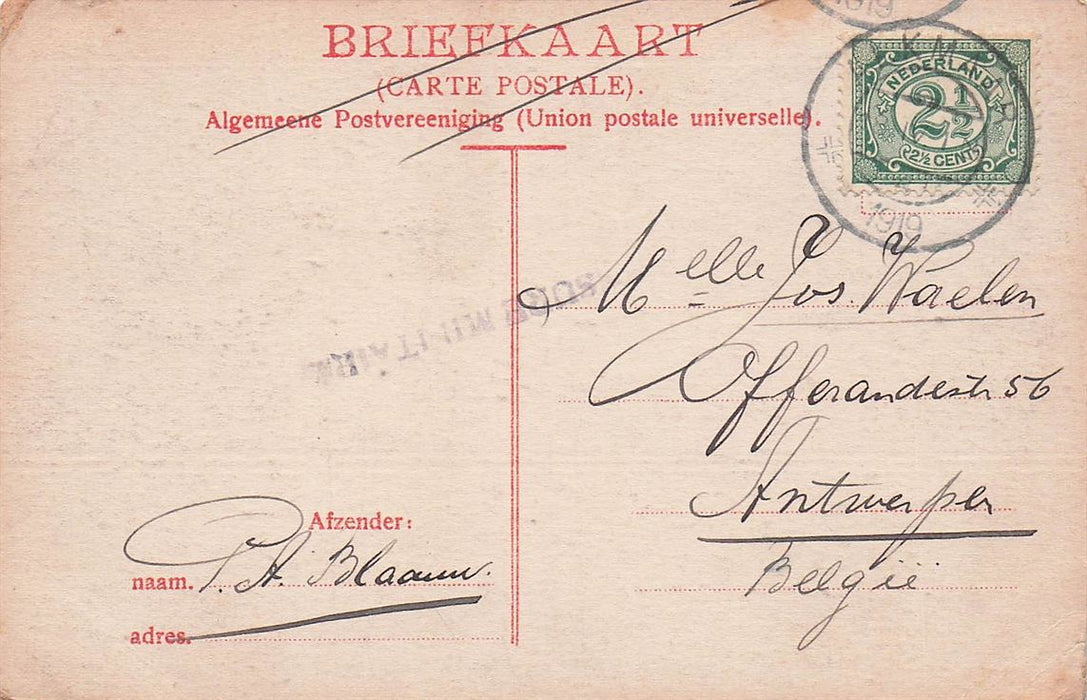 BRIEFKAART
(CARTE POSTALE).
Algemeene Postvereeniging (Union postale universelle).
NEDERLAND
2½
2½ CENT
1919
1919
Melle Jos. Waelen
Offerandestr 56
Antwerpen
België
MILITAIRE
Afzender:
naam. P. A. Blaauw.
adres.